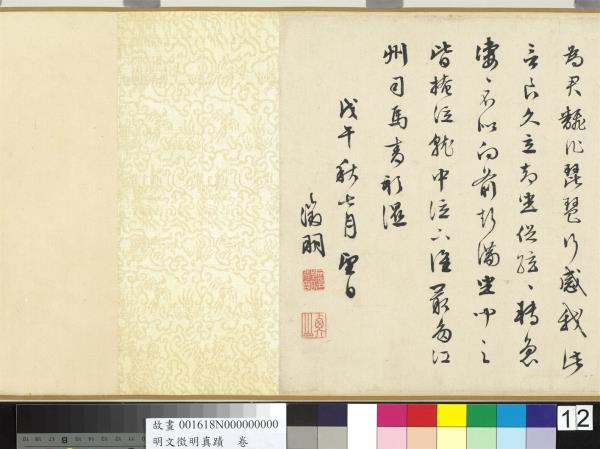 為君翻作琵琶行感我此
言良久立却坐促弦〻轉急
凄〻不似向前聲滿坐聞之
皆掩泣就中泣下誰最多江
州司馬青衫濕
戊午秋七月望日
徵明
故畫 001618N000000000
明文徵明真蹟 卷
12